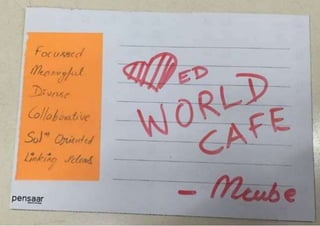 Focussed
Meaningful
Diverse
Collaborative
Solⁿ Oriented
Linking ideas
ED
WORLD
CAFE
- Mcube
pensaar